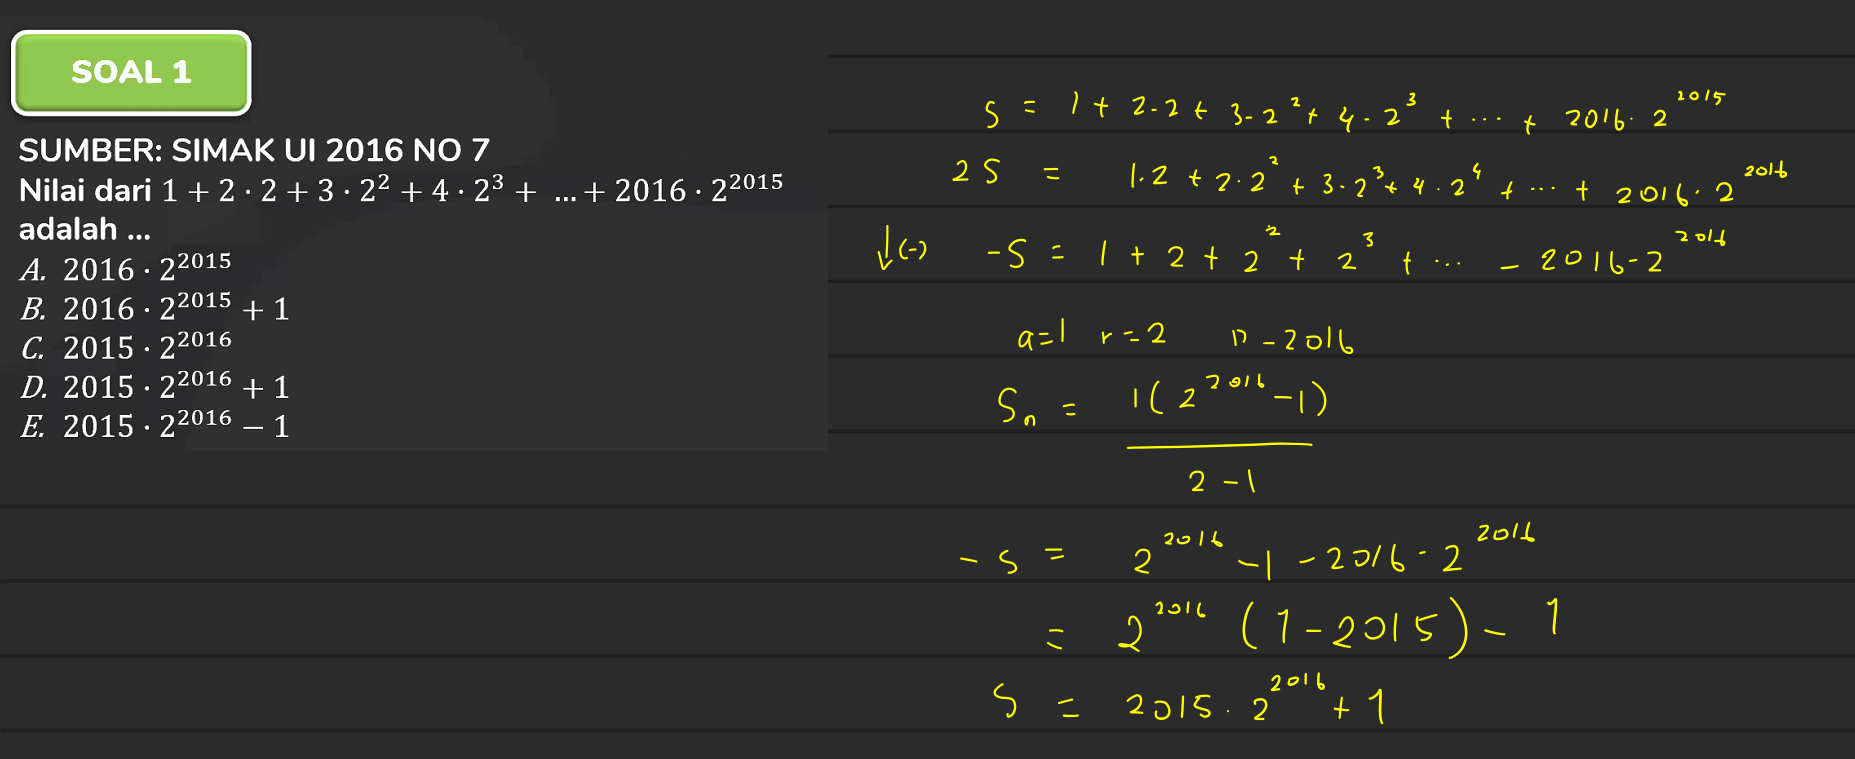 SOAL 1
SUMBER: SIMAK UI 2016 NO 7
Nilai dari 1 + 2 · 2 + 3 · 2² + 4 · 2³ + ... + 2016 · 2²⁰¹⁵
adalah ...
A. 2016 · 2²⁰¹⁵
B. 2016 · 2²⁰¹⁵ + 1
C. 2015 · 2²⁰¹⁶
D. 2015 · 2²⁰¹⁶ + 1
E. 2015 · 2²⁰¹⁶ − 1
S = 1 + 2·2 + 3·2² + 4·2³ + ... + 2016·2²⁰¹⁵
2S = 1·2 + 2·2² + 3·2³ + 4·2⁴ + ... + 2016·2²⁰¹⁶
↓(-) -S = 1 + 2 + 2² + 2³ + ... - 2016-2²⁰¹⁶
a=1 r=2 n-2016
Sₙ = 1(2²⁰¹⁶-1)
2-1
-S = 2²⁰¹⁶-1-2016·2²⁰¹⁶
= 2²⁰¹⁶(1-2015)-1
S = 2015·2²⁰¹⁶+1